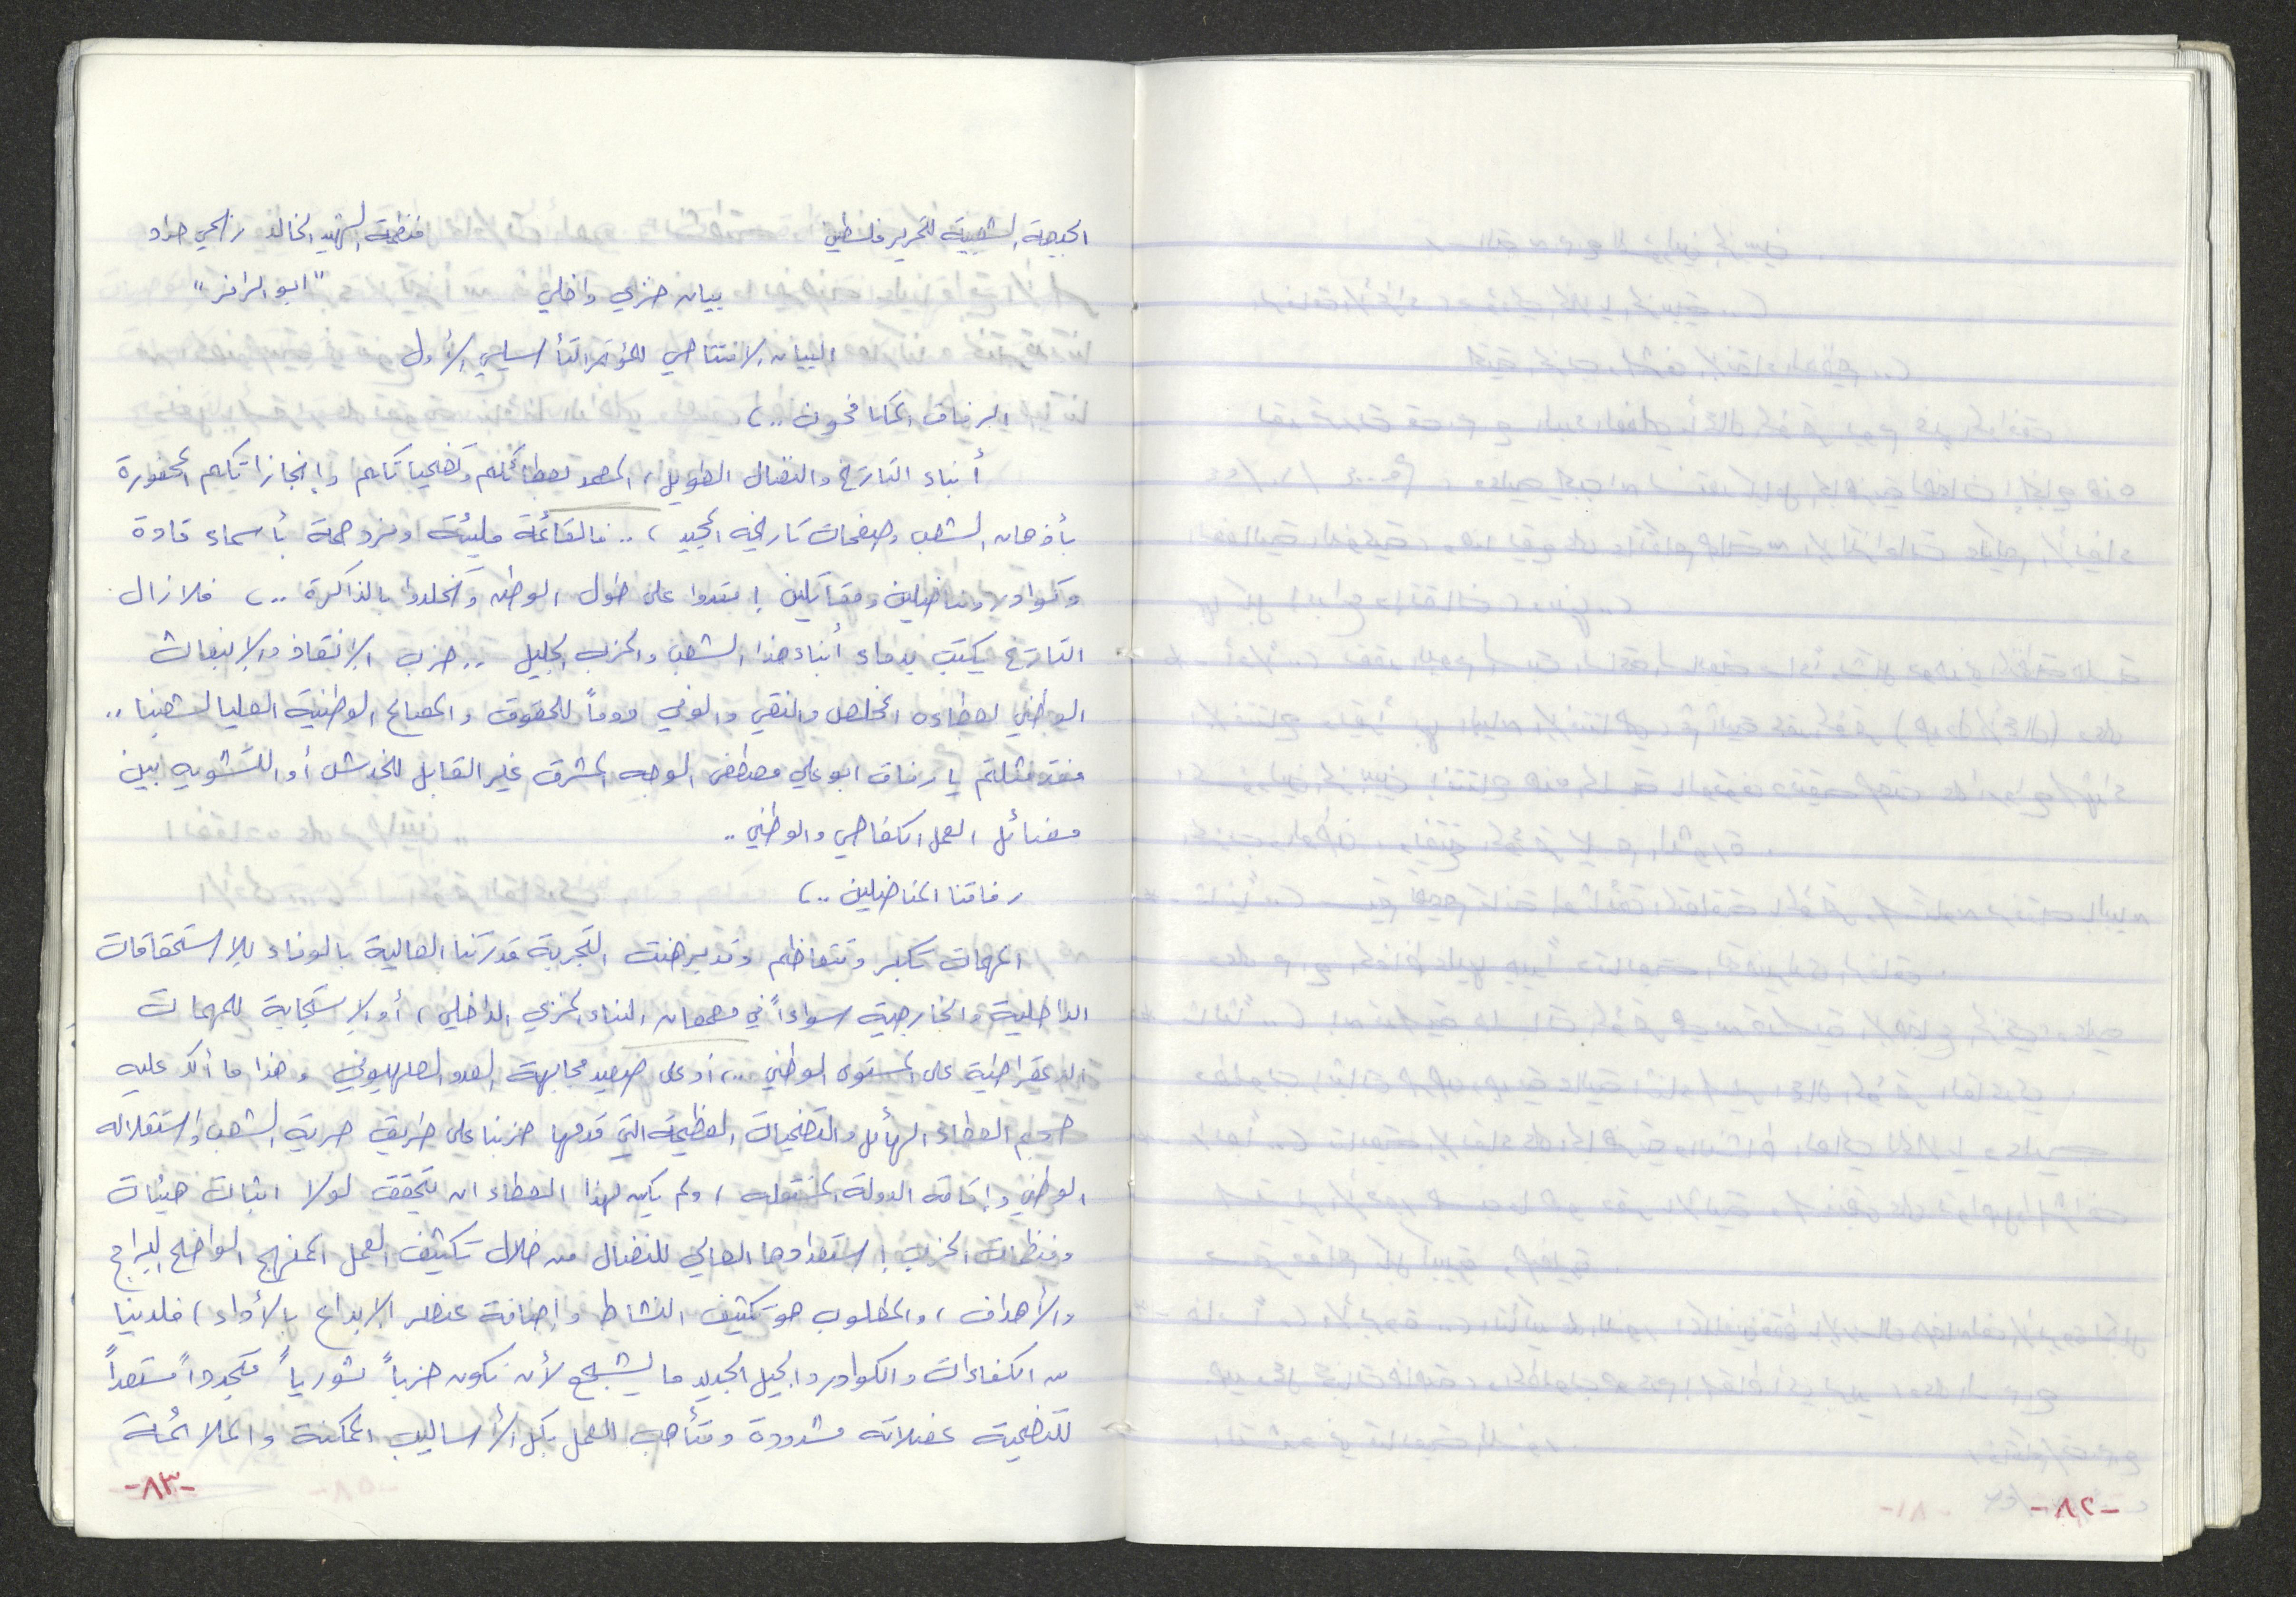 الجبهة الشعبية لتحرير فلسطين
منظمة الشهيد الخالد ربحي حداد
"ابو الرامز"
بيان حزبي داخلي
البيان الافتتاحي للمؤتمر التأسيسي الأول
الرفاق المكافحون ..،
أبناء التاريخ والنضال الطويل، المجد لعطائكم وتضحياتكم وإنجازاتكم المحفورة
بأذهان الشعب وصفحات تاريخه المجيد، .. فالقائمة مليئة ومزدحمة بأسماء قادة
وكوادر ومناضلين ومقاتلين امتدوا على طول الوطن وتخلدوا بالذاكرة ..، فلازال
التاريخ يكتب بدماء أبناء هذا الشعب والحزب الجليل .. حزب الإنقاذ والإنبعاث
الوطني لعطاءه المخلص والنقي والوفي دوماً للحقوق والمصالح الوطنية العليا لشعبنا ..
فقد مثلتم يا رفاق ابو علي مصطفى الوجه المشرق غير القابل للخدش أو التشويه بين
فصائل العمل الكفاحي والوطني ..
رفاقنا المناضلين ..،
المهمات تكبر وتتعاظم وقد برهنت التجربة قدرتنا العالية بالوفاء للاستحقاقات
الداخلية والخارجية سواءاً في مجمعان البناء الحزبي الداخلي، أو الإستجابة للمهمات
الديمقراطية على المستوى الوطني ..، أو على صعيد مجابهة العدو الصهيوني وهذا ما أكد عليه
حجم العطاء الهائل والتضحيات العظيمة التي قدمها حزبنا على طريق حرية الشعب واستقلاله
الوطني وإقامة الدولة المستقلة، ولم يكن لهذا العطاء ان يتحقق لولا اثبات هيئات
ومنظمات الحزب استعدادها العالي للنضال من خلال تكثيف العمل الممنهج الواضح البرامج
والأهداف، والمطلوب هو تكثيف النشاط وإضافة عنصر الإبداع بالأداء، فلدينا
من الكفاءات والكوادر والجيل الجديد ما يشجع لأن نكون حزباً ثورياً متجدداً مستعداً
للتضحية عضلاته مشدودة ومتأهب للعمل بكل الأساليب الممكنة والملائمة
-٨٣-
-٨٢-